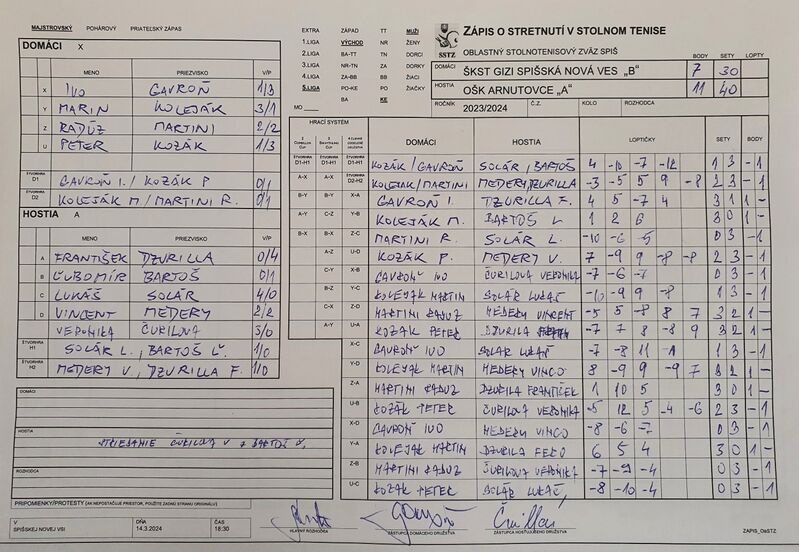 MAJSTROVSKÝ POHÁROVÝ PRIATEĽSKÝ ZÁPAS
DOMÁCI X
MENO PRIEZVISKO V/P
X IVO GAVROŇ 1/3
Y MARIN KOLEJÁK 3/1
Z RADÚZ MARTINI 2/2
U PETER KOZÁK 1/3
ŠTVORHRA D1 GAVROŇ I./ KOZÁK P 0/1
ŠTVORHRA D2 KOLEJÁK M./MARTINI R. 0/1
HOSTIA A
MENO PRIEZVISKO V/P
A FRANTIŠEK DZURILLA 0/4
B ĽUBOMÍR BARTOŠ 0/1
C LUKÁŠ SOLÁR 4/0
D VINCENT MEDERY 2/2
VERONIKA ČURILOVA 3/0
ŠTVORHRA H1 SOLÁR L., BARTOŠ Ľ. 1/0
ŠTVORHRA H2 MEDERY V., DZURILLA F. 1/0
DOMÁCI
HOSTIA
STRIEDANIE ČURILOVA V Z BARTOŠ
ROZHODCA
PRIPOMIENKY/PROTESTY (AK NEPOSTAČUJE PRIESTOR, POUŽITE ZADNÚ STRANU ORIGINÁLU)
V DŇA ČAS
SPIŠSKEJ NOVEJ VSI 14.3.2024 18:30
HLAVNÝ ROZHODCA ZÁSTUPCA DOMÁCEHO DRUŽSTVA ZÁSTUPCA HOSŤUJÚCEHO DRUŽSTVA ZAPIS_OeSTZ
EXTRA ZÁPAD TT MUŽI
1.LIGA VÝCHOD NR ŽENY
2.LIGA BA-TT TN DORCI
3.LIGA NR-TN ZA DORKY
4.LIGA ZA-BB BB ŽIACI
5.LIGA PO-KE PO ŽIAČKY
BA KE
MO
SSTZ
ZÁPIS O STRETNUTÍ V STOLNOM TENISE
OBLASTNÝ STOLNOTENISOVÝ ZVÄZ SPIŠ
BODY SETY LOPTY
DOMÁCI ŠKST GIZI SPIŠSKÁ NOVÁ VES „B“ 7 30
HOSTIA OŠK ARNUTOVCE „A“ 11 40
ROČNÍK 2023/2024 Č.Z. KOLO ROZHODCA
HRACÍ SYSTÉM DOMÁCI HOSTIA LOPTIČKY SETY BODY
ŠTVORHRA D1-H1 ŠTVORHRA D1-H1 ŠTVORHRA D1-H1 KOZÁK/GAVROŇ SOLÁR, BARTOŠ 4 -10 -7 -12 1 3 - 1
A-X A-X ŠTVORHRA D2-H2 KOLEJÁK/MARTINI MEDERI, DZURILLA -3 -5 5 9 -8 2 3 - 1
B-Y B-Y X-A GAVROŇ I. DZURILLA F. 4 5 -7 4 3 1 1 -
A-Y C-Z Y-B KOLEJÁK M. BARTOŠ L 1 2 6 3 0 1 -
B-X B-X Z-C MARTINI R. SOLÁR L. -10 -6 -5 0 3 - 1
A-Z U-D KOZÁK P. MEDERY V. 7 -9 9 -8 -8 2 3 - 1
C-Y X-B GAVROŇ IVO ČURILOVA VERONIKA -7 -6 -7 0 3 - 1
B-Z Y-C KOLEJAK MARTIN SOLAR LUKAŠ -10 -9 9 -8 1 3 - 1
C-X Z-D MARTINI RADUZ MEDERY VINCENT -5 5 -8 8 7 3 2 1 -
A-Y U-A KOZAK PETER DZURILA -7 7 8 -8 9 3 2 1 -
X-C GAVROŇ IVO SOLAR LUKAŠ -7 -8 11 1 3 - 1
Y-D KOLEJAK MARTIN MEDERY VINCO 8 -9 9 -9 7 3 2 1 -
Z-A MARTINI RADUZ DZURILA FRANTIŠEK 1 10 5 3 0 1 -
U-B KOZÁK PETER ČURILOVA VERONIKA -5 12 5 -4 -6 2 3 - 1
X-D GAVROŇ IVO MEDERY VINCO -8 -6 -7 0 3 - 1
Y-A KOLEJAK MARTIN DZURILA FERO 6 5 4 3 0 1 -
Z-B MARTINI RADUZ ČURILOVA VERONIKA -7 -9 -4 0 3 - 1
U-C KOZAK PETER SOLÁR LUKAŠ -8 -10 -4 0 3 - 1